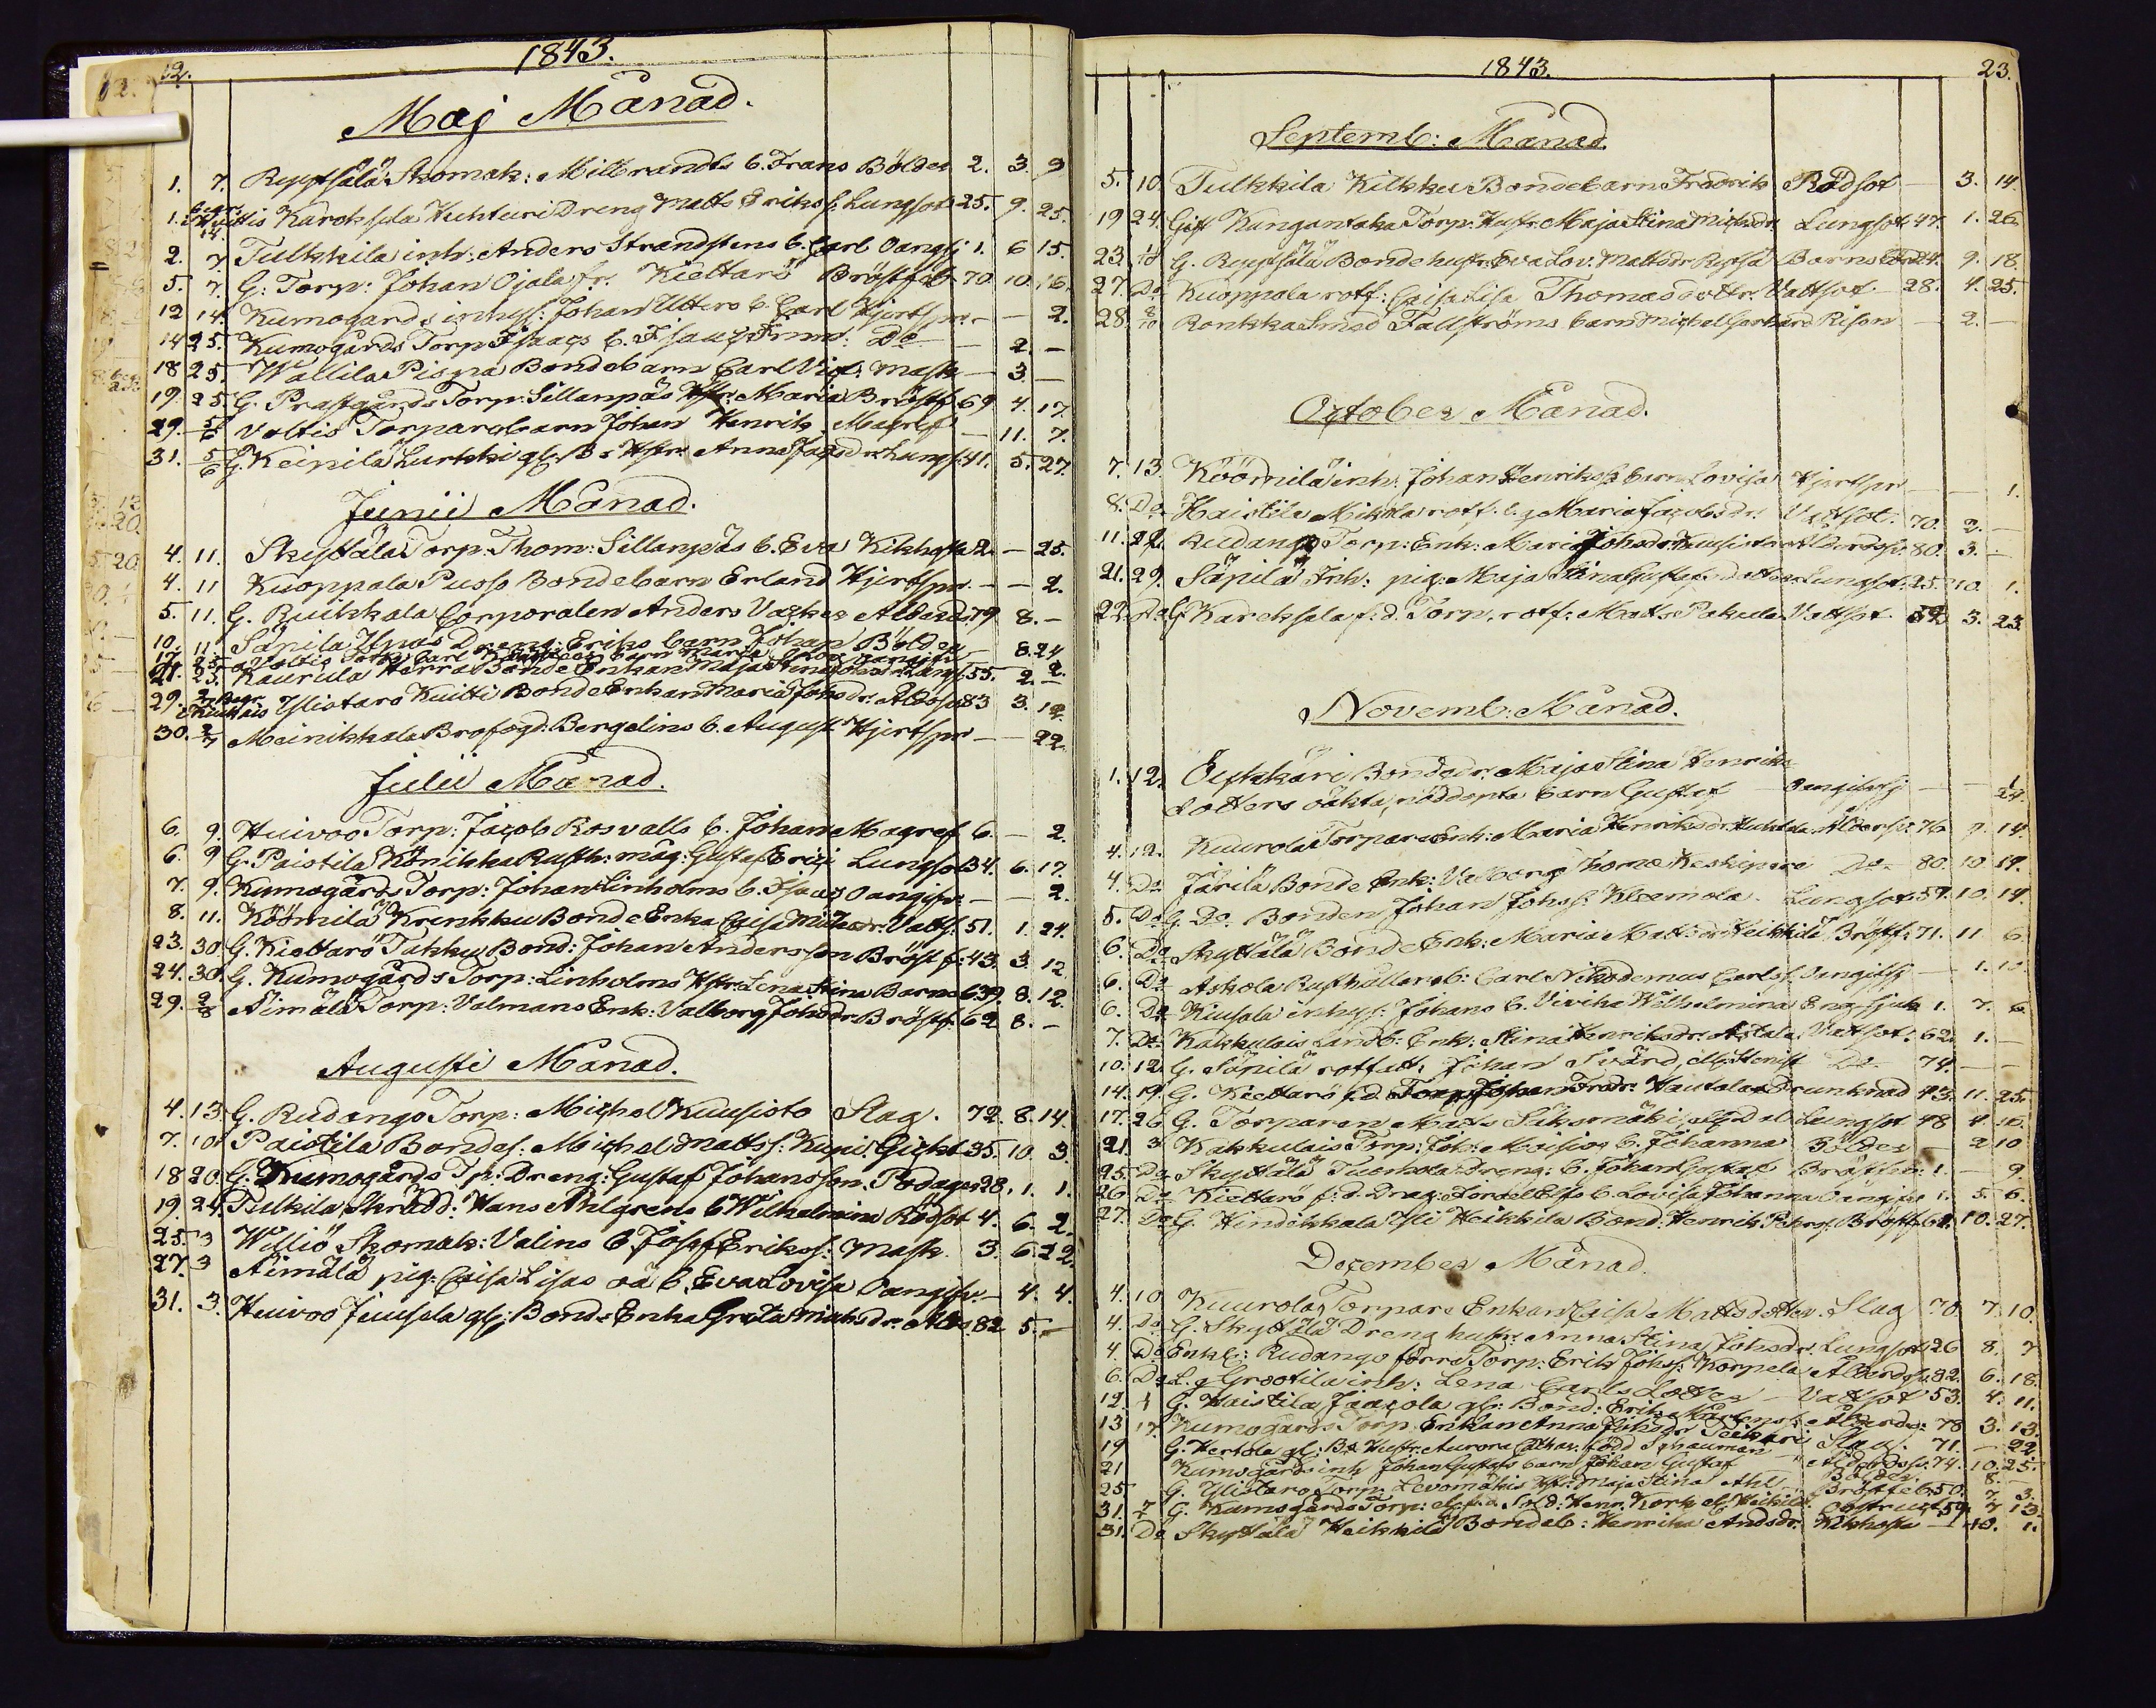 12.
1843.
Maj Månad.
1. 7. Reppsälä Skomak: Milbrandts b. Frans Bölder 2. 3. 9
1. begr. i Hvittis 14. Karcksela Huhturi Dreng Matts Erikss. Lungsot 25. 9. 25.
2. 7 Tulkkila inh: Anders Strandstens b. Carl Oangifj 1. 6 15.
5. 7. G. Torp: Johan Ojala fr. Kiettarö Bröstfeb 70. 10. 16.
12 14. Kumogårds inhys: Johan Utters b. Carl Hjertspr. — — 2.
14 25. Kumogårds Torp Isaacs b. Do — 2. —
18 25. Wällilä Piopa Bondebarn Carl Vict: Mask — 3. —
19. 25. G. Prästgårds Torp: Sillanpäs Hstr: Maria Bröstf 69 4. 17.
29. 5/6 Voltis Torparebarn Johan Henrik Magref — 11. 7.
31. 5/6 G. Keipilä Lurkki gl. B: Hstr. Anna Jacsdr. Lungs. 41. 5. 27.
Junii Månad.
4. 11. Skyttälä Torp: Thom: Sillanpäs b. Eva Kikhosta 2. — 25.
4. 11 Kuoppala Pusso Bondebarn Erland Hjertspr. — — 2.
5. 11. G. Ruikkala Corporalen Anders Vacker Ålderd. 79 8. —
10. 11. Säpilä Dreng: Eriks barn Johan Bölder — 8. 24
17. 25. Voltis Torp: Carl barn Maria Oangifv 2.
21. 25. Kaurula Herra Bonde Enkan Maja Stina Lungs. 55. 2. —
29. 2/7 Begr. i Kiukais Ylistaro Kuitti Bonde Enkan Maria Johsdr. Åldoss. 83 3. 12.
30. 2/7 Meinikkala Brofogd: Bergelins b. August Hjertspr — — 22.
Julii Månad.
6. 9. Huivoo Torp: Jacob Rosvalls b. Johan Magref. 6. — 2.
6. 9 G. Paistila Könikka Rusth: måg: Gustaf Erici Lungsot 34. 6. 17.
7. 9. Kumogårds Torp: Johan Linholms b. Isaac Oangifv. — — 2.
8. 11. Köömilä Krenkku Bonde Enka Caisa Michsdr. Vatts. 51. 1. 24.
23. 30 G. Kiettarö Tukku Bond: Johan Andersson Bröstf: 43. 3. 12
24. 30. G. Kumogårds Torp: Linholms Hstr. Lena Stina Barnsb 39. 8. 12.
29. 2/8 Aimälä Torp: Valmans Enk: Valborg Johsdr. Bröstf. 62 8. —
Augusti Månad.
4. 13 G. Rudango Torp: Michel Kuusisto Slag. 72. 8. 14.
7. 10 Paistila Bondes. Michel Mattss. Kupi. Gickt 35. 10. 3.
18 20. G. Kumogårds Tp: Dreng: Gustaf Johansson. Podager 28. 1. 1.
19. 24. Tulkila Skrädd: Hans Ahlgrens b Wilhelmina Rödsot 4. 6. 2.
25. 3 Williö Skomak: Valins b. Josef Erikss: Mask. 3. 6. 22
27. 3 Aimälä pig: Caisa Lisas oä b. Eva Lovisa Oangifv. — 4. 4.
31. 3. Huivoo Juusela gl: Bonde Enka Greta Michsdr. Åldos 82 5. —
1843.
23.
Septemb: Månad.
5. 10 Tulkkila Kilkku Bondebarn Fredrik Rödsot — 3. 14.
19 24. Gift Kungantaka Torp: Hustr. Maja Stina Michsdr Lungsot 47. 1. 26
23. 1/10 G. Reppsälä Bonde hustr. Eva Lov. Mattsdr Barns 24. 9. 18.
27. Do Kuoppala rotf: Caisa Lisa Thomas dottr. Vattsot 28. 4. 25.
28. 8/10 Ronkka Smed Fallströms barn Michel Gerhard Risen — 2. —
October Månad.
7. 13. Köömilä inh: Johan Henrikss barn Lovisa Hjertspr — — 1.
8. Do Haistila Mikola rotf. e. q Maria Jacobsdr. Vattsot. 70. 2. —
11. 22. Rudango Torp: Enk: Maria Johsdr. Kuusisto Åldersv. 80. 3. —
21. 29. Säpilä Inh: pig: Maja Stina Gustafsdotter Lungsot. 25. 10. 1.
22. Do G. Karcksela f. d. Torp, rotf: Matts Pakula Vattsot 52 3. 23
Novemb: Månad.
1. 12. Öfrekäri Bondedr. Maja Stina Henriks
dotters oäkta, nöddöpta barn Gustaf Oangifvfj — — 1/24.
4. 12. Kuurola Torpare Enk: Maria Henriksdr. Huhtala Åldersv. 76 9. 14.
4. Do Järilä Bonde Enk: Valborg Thomæ Keskipere Do 80. 10 19.
5. Do G. Do. Bonden Johan Johss. Kleemola. Lungsot. 57. 10. 14.
6. Do Skyttälä Bonde Enk: Maria Matt: dr. Heikkilä Bröstf: 71. 11 6.
6. Do Askola Rusthållareb: Carl Nikodemus Carlss. Oangifvfj — 1. 10.
6. Do Kiusala inhys: Johans b. Vivika Wilhelmina Eng. sjuk 1. 7. 6.
7. Do Kakkulais Landb: Enk: Stina Henriksdr. Astala. Vattsot: 62. 1. —
10. 12. G. Säpilä rotfatt: Johan Svärd, Do 74. — —
14. 19. G. Kiettarö f.d. Torp: Johan Fredr: Hautala Drunknad 43. 11. 25.
17. 26 G. Torparen Matts Säksmäki, Lungsot 48 4. 10.
21. 3 Kakkulais Torp: Joh: Moisios b. Johanna Bölder — 2 10
25. Do Skyttälä Tuorkola Dreng: b. Johan Gustaf Bröstfeb. 1. — 9.
26. Do Kiettarö f. d. Drag: b. Lovisa Johanna Oangifv 1. 5. 6.
27. Do G. Hindikkala Yli Heikkilä Bond. Henrik Bröstf 62. 10. 27.
December Månad.
4. 10 Kuurola Torpare Enkan Caisa Mattsdotter. Slag 70. 7. 10.
4. Do G. Skyttälä Dreng hustr: Anna Stina Johsdr. Lungsot 26 8. 7
4. Do Enkl: Rudango förre Torp: Erik Johss: Korpela Ålderds. 82. 6. 18.
6. Do L. g. Grootila inh: Lena Carls dotter — Vattsot 53. 4. 11.
12. G. Haistila Jaacola gl: Bond: Erik Ålderds: 78 3. 13.
13 17 Kumogårds Torp: Enkan Anna Johsdr Teikari Slag. 71. — 22.
19 G. Hertola gl: B. Hustr: Aurora Cathar. född Schauman Ålderdoss. 74. 10. 25.
21 Kumogårds inh Johan Gustafs barn Johan Gustaf Bölder. 8. —
25 G. Ylistaro Torp: Levomäkis Hst: Maja Stina Ahl Bröstfeb. 50. 7. 3.
31. 7 G. Kumogårds Torp: f. d. Sold: Henr. Kork 59. 7 13.
31. Do Skyttälä Heikkilä Bondeb: Henrika Andsdr. Kikhosta — 10. 1.